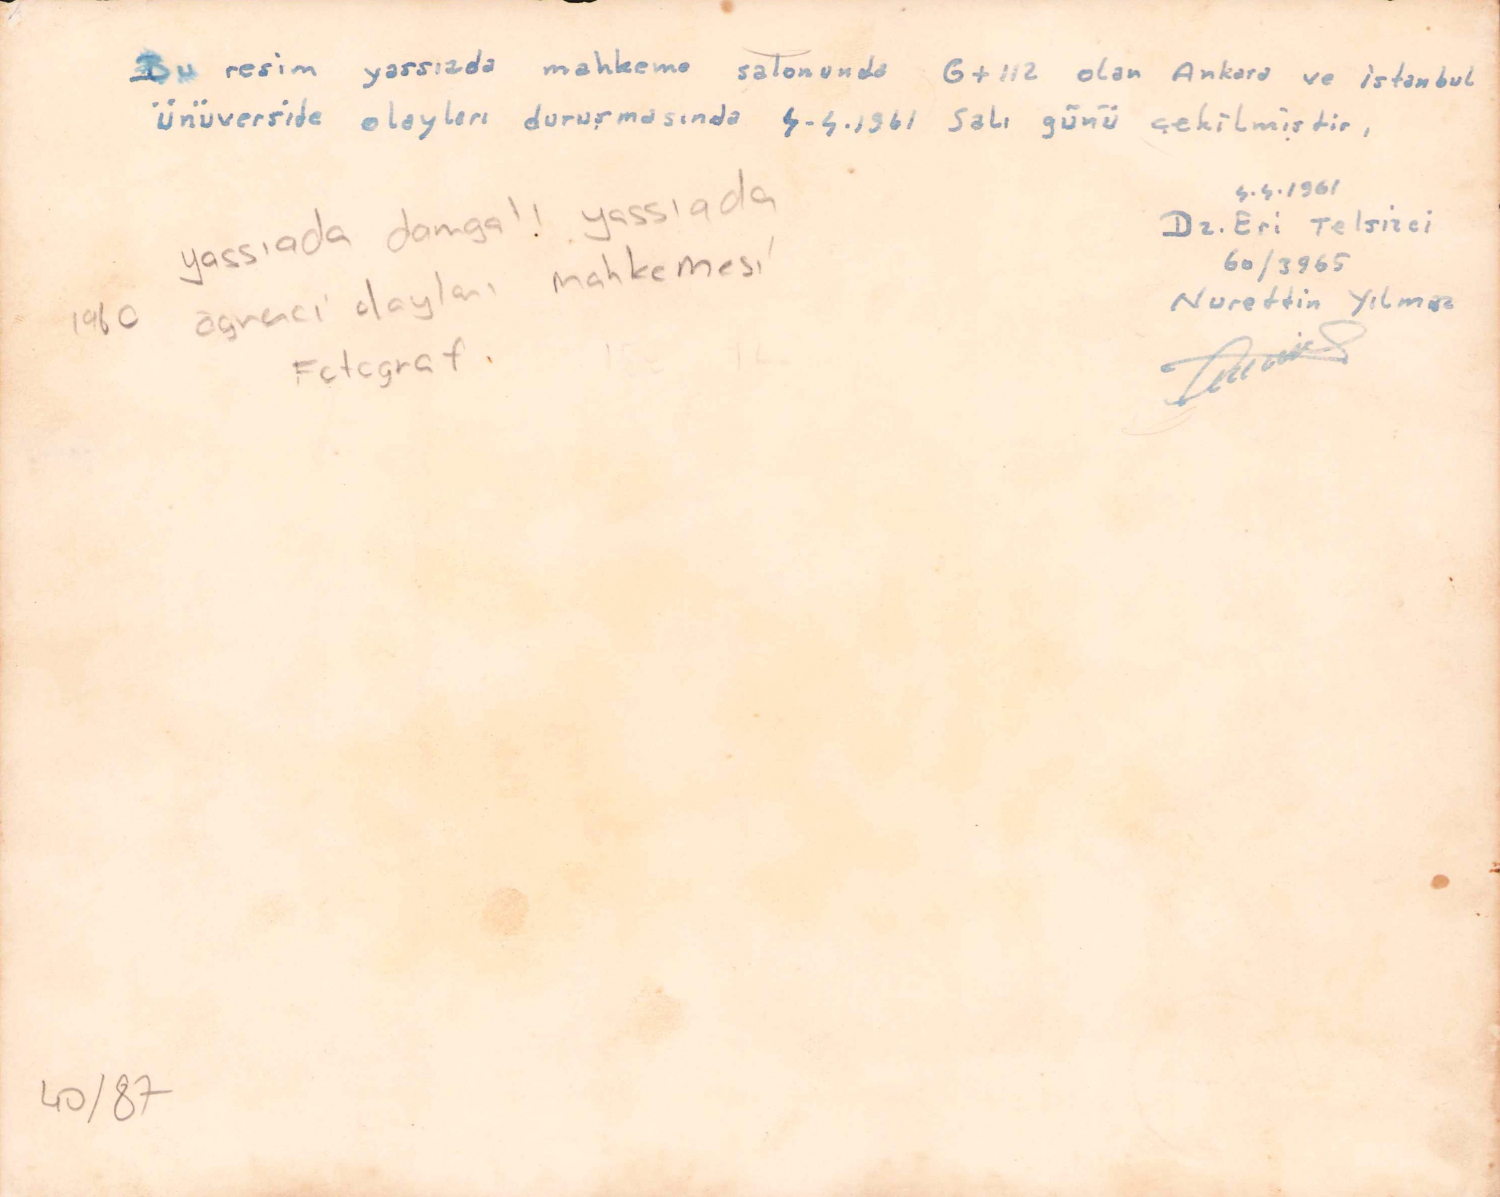 Bu resim yassıada mahkeme salonunda G+112 olan Ankara ve istanbul
ünüverside olayları duruşmasında 4-4.1961 Salı günü çekilmiştir,
4.4.1961
Dz. Eri Telsizci
60/3965
Nurettin Yılmaz
yassıada damgalı yassıada
1960 öğrenci olayları mahkemesi
Fotograf.
40/87